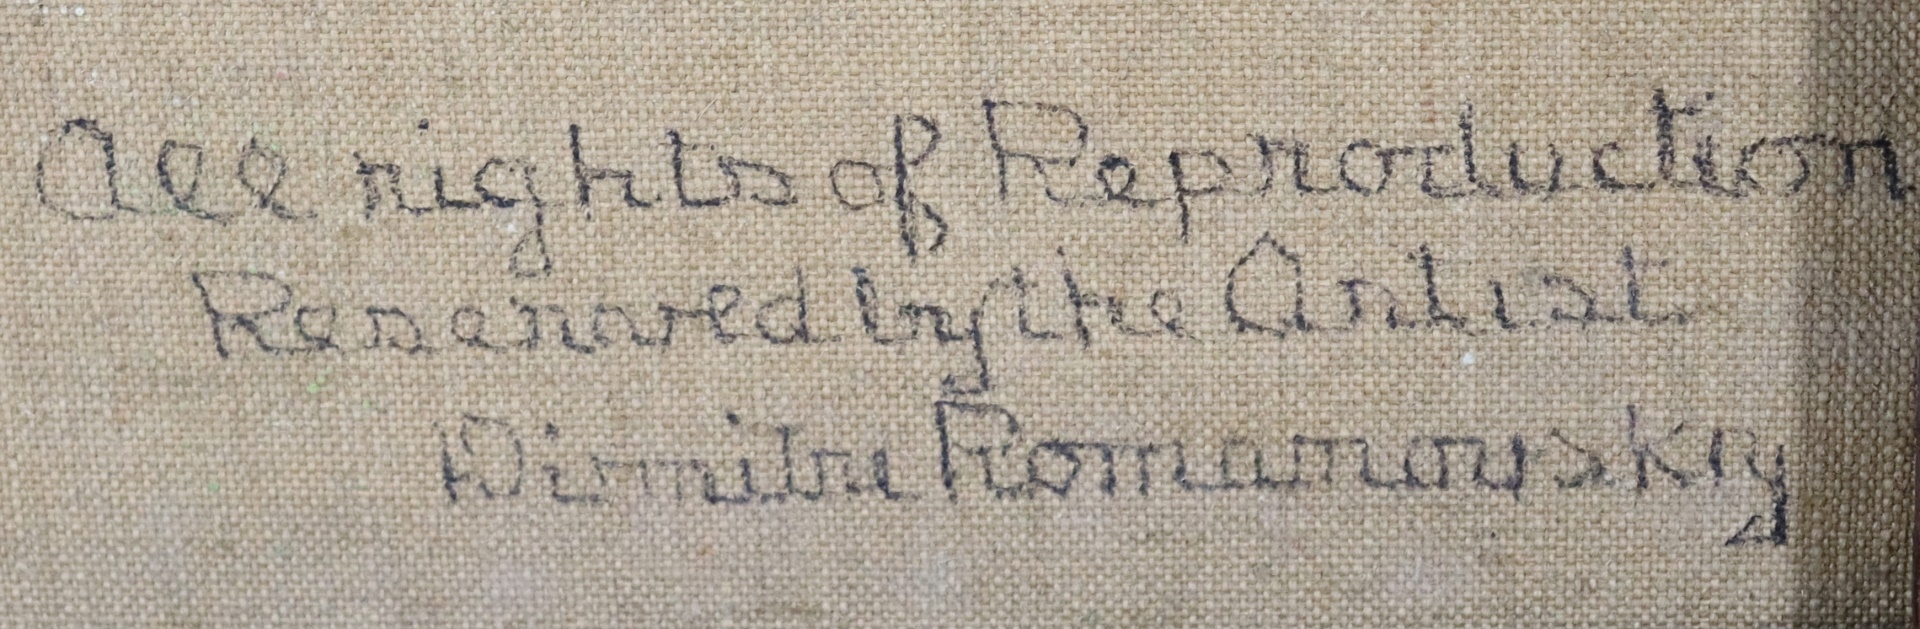 All rights of Reproduction
Reserved by the Artist
Dimitri Romanovsky